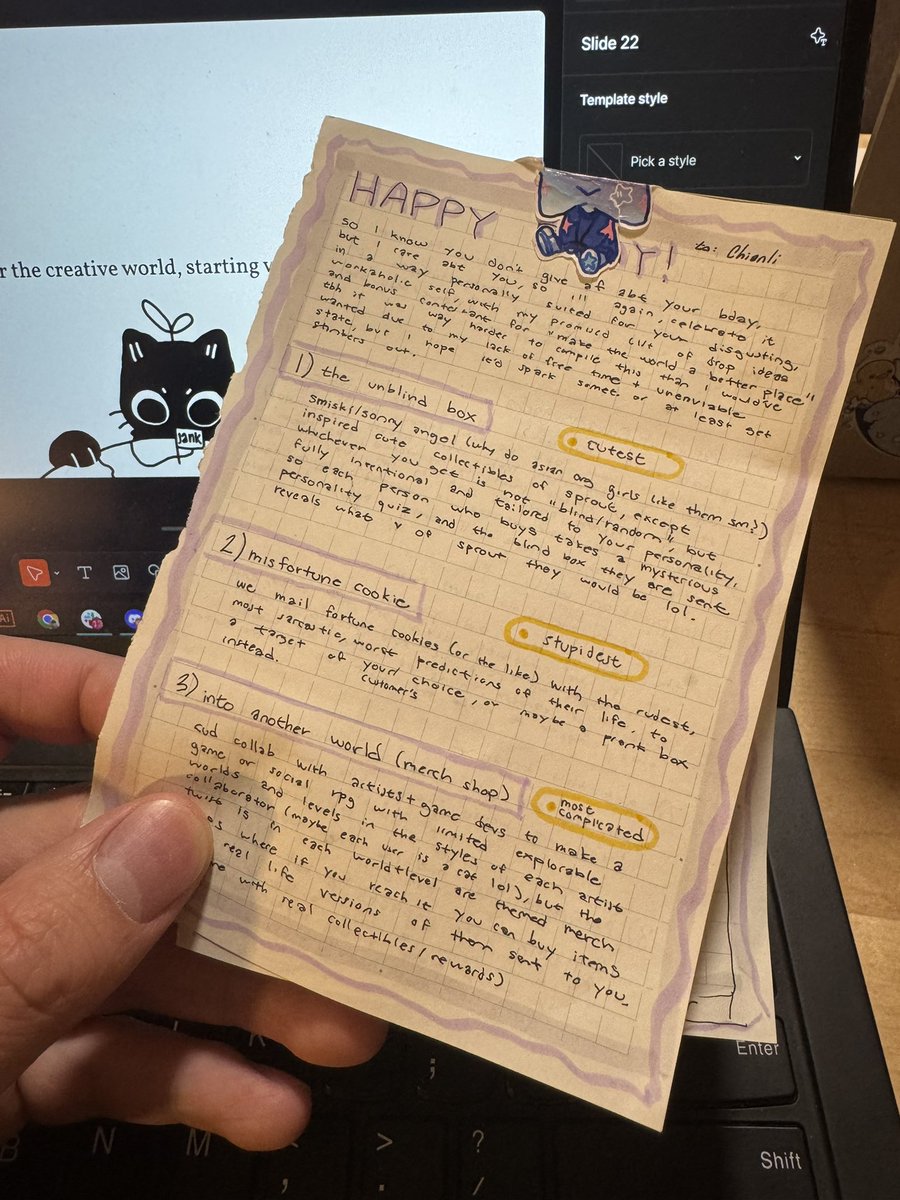 Slide 22
Template style
Pick a style
r the creative world, starting
jank
T
Ai
HAPPY
to: Chianli
so I know you don't give af abt your bday,
but I care abt you, so i'll again, celebrate it
in a way personally suited for your disgusting,
workaholic self, with my promised list of drop ideas
and bonus content for "make the world a better place"
tbh it was way harder to compile this than I would've
wanted due to my lack of free time + unenviable
state, but I hope it'd spark somet. or at least get
stinkers out.
1) the unblind box
cutest
smiski/sonny angel (why do asian org girls like them sm?)
inspired cute collectibles of sprout, except
whichever you get is not "blind/random", but
fully intentional and tailored to your personality.
so each person who buys takes a mysterious
personality quiz, and the blind box they are sent
reveals what v of sprout they would be lol.
2) misfortune cookie
stupidest
we mail fortune cookies (or the like) with the rudest,
most sarcastic, worst predictions of their life, to
a target of your/customer's choice, or maybe a prank box
instead.
3) into another world (merch shop)
most complicated
cud collab with artists + game devs to make a
game or social rpg with limited explorable
worlds and levels in the styles of each artist
collaborator (maybe each user is a cat lol), but the
twist is in each world+level are themed merch
where if you reach it you can buy items
real life versions of them sent to you.
with real collectibles/rewards)
Enter
Shift
K
;
N
M
>
?
/